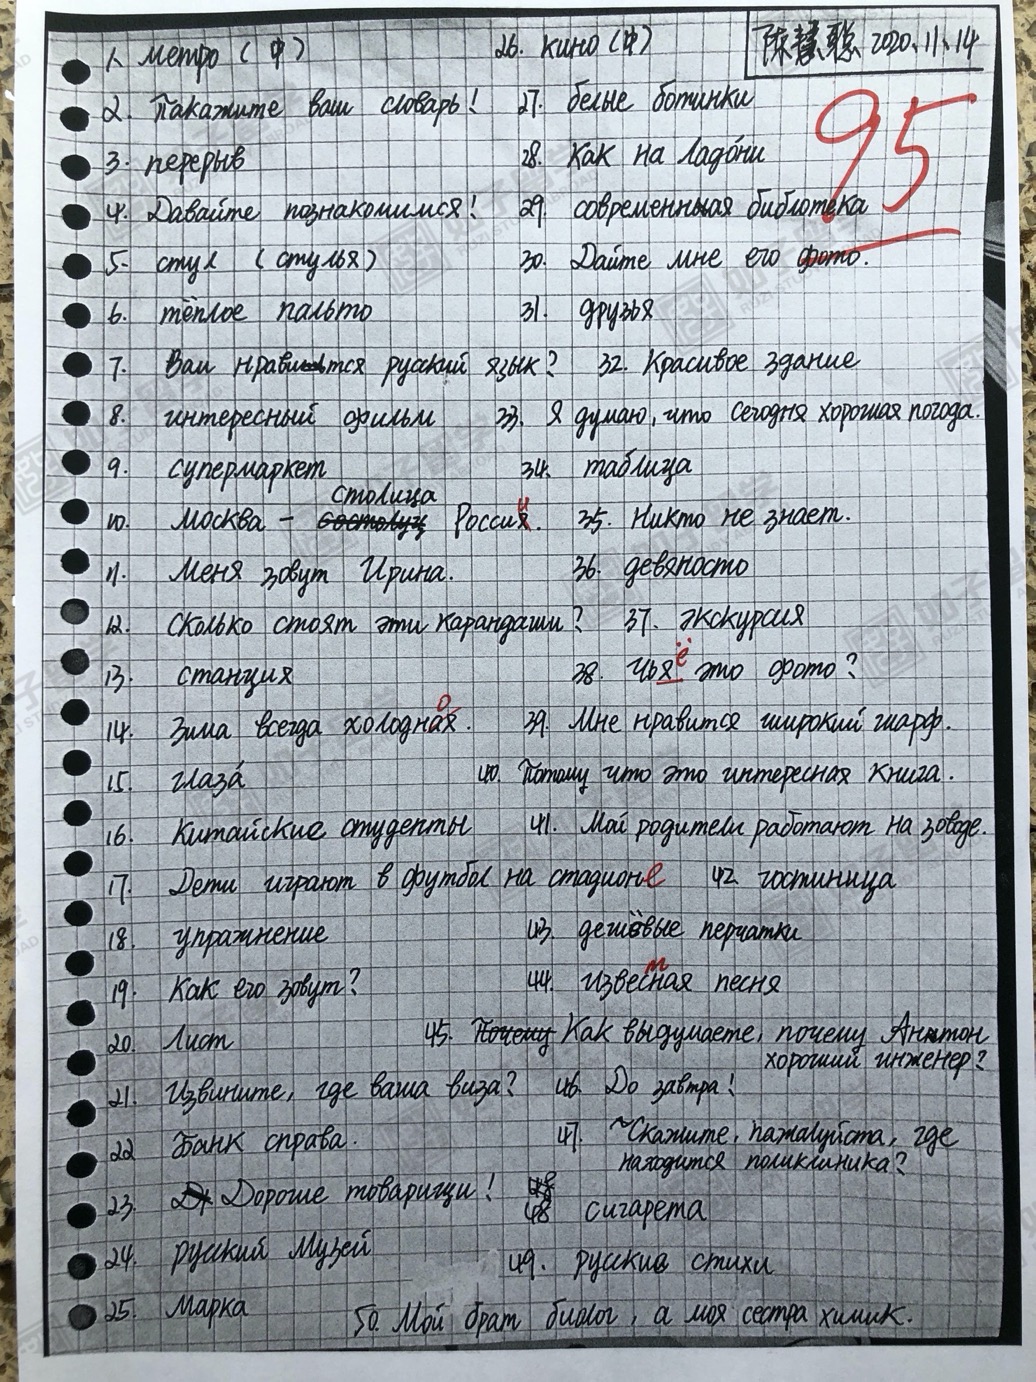 1. метро (中)
2. Пакажите ваш словарь!
3. перерыв
4. Давайте познакомимся!
5. стул (стулья)
6. тёплое пальто
7. Вам нравится русский язык?
8. интересный фильм
9. супермаркет
10. Москва - столица Россия. и
11. Меня зовут Ирина.
12. Сколько стоят эти карандаши?
13. станция
14. Зима всегда холодная. о
15. глаза́
16. Китайские студенты
17. Дети играют в футбол на стадионе
18. упражнение
19. Как его зовут?
20. Лист
21. Извините, где ваша виза?
22 Банк справа.
23. Дорогие товарищи!
24. русский Музей
25. Марка
26. кино (中)
27. белые ботинки
28. Как на ладо́ни
29. современная библотека
30. Дайте мне его фото.
31. друзья
32. Красивое здание
33. Я думаю, что сегодня хорошая погода.
34. таблица
35. Никто не знает.
36. девяносто
37. экскурсия
38. Чья ё это фото?
39. Мне нравится широкий шарф.
40. Потому что это интересная книга.
41. Мои родители работают на зоводе.
42. гостиница
43. дешёвые перчатки
44. известная песня
45. Почему Как вы думаете, почему Антон
хороший инженер?
46. До завтра!
47. Скажите, пажалуйста, где
находится поликлиника?
48 сигарета
49. русские стихи
50. Мой брат биолог, а моя сестра химик.
陈慧聪 2020.11.14
95